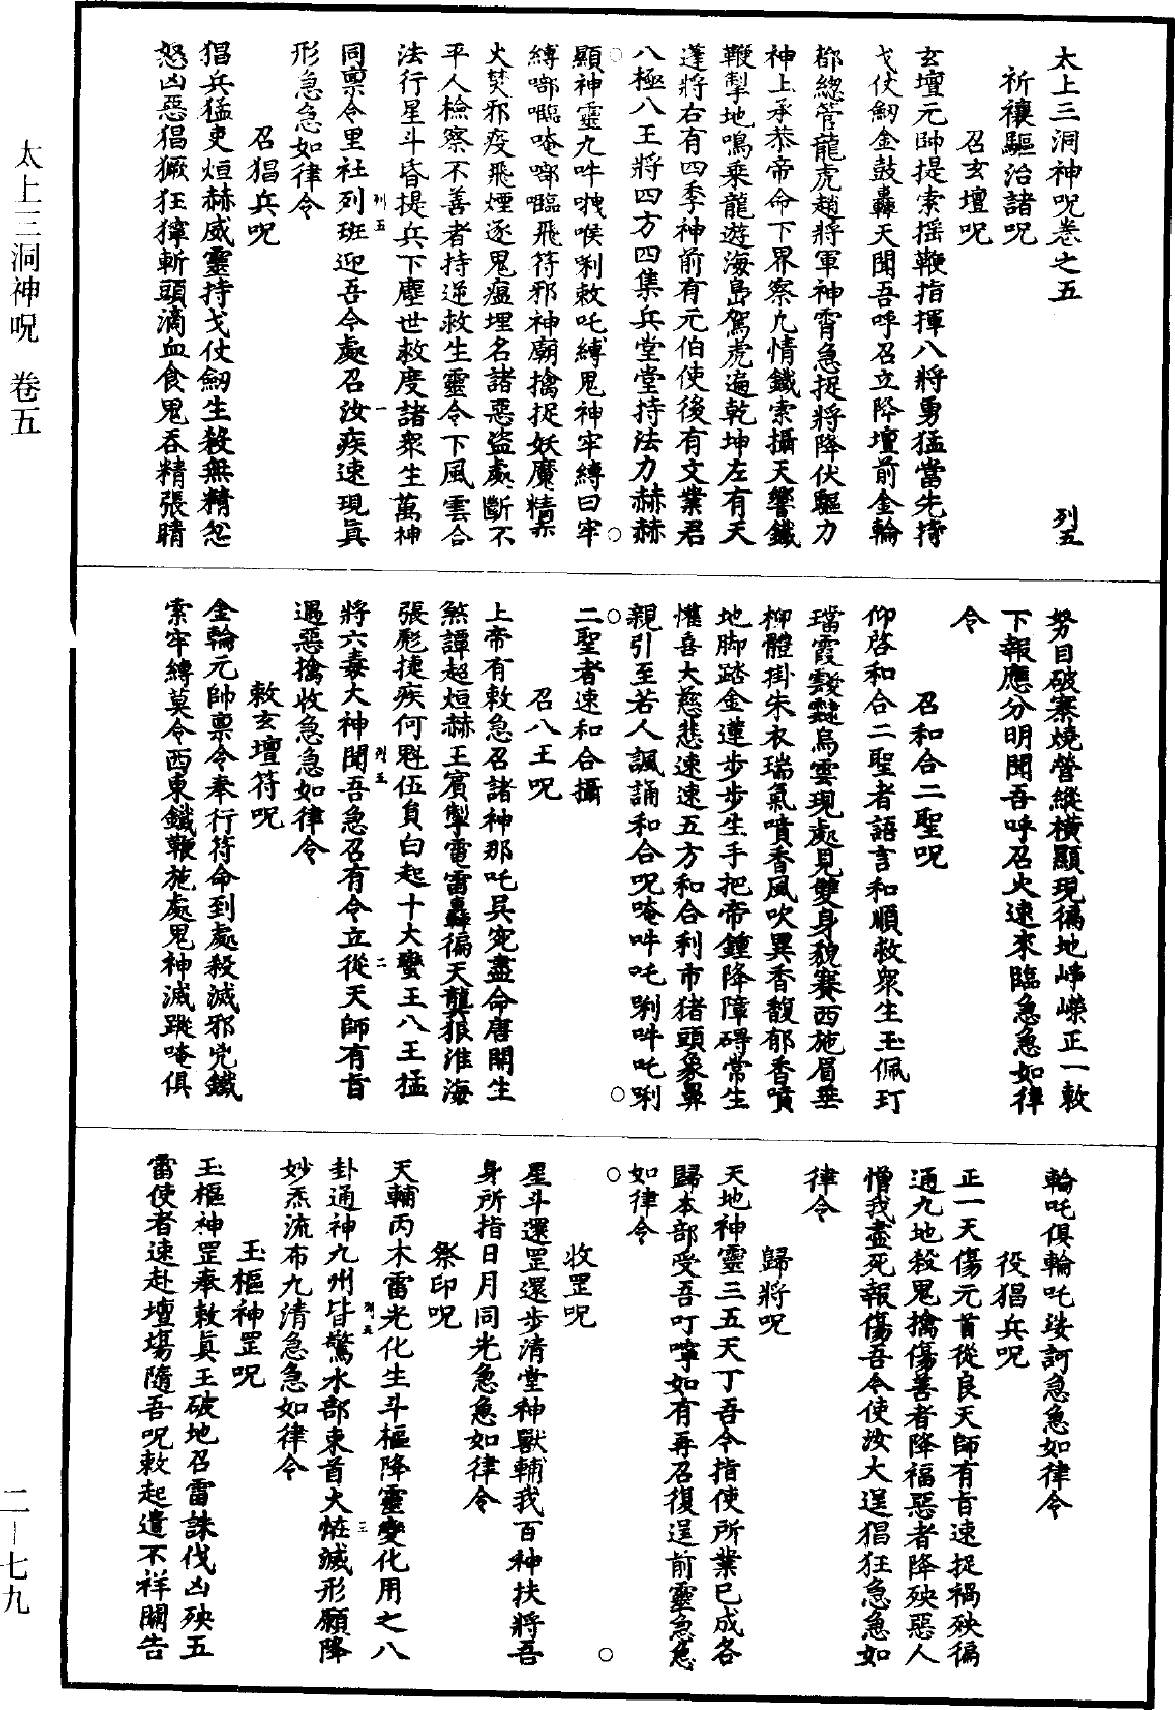 太上三洞神呪卷之五 列五
祈禳驅治諸呪
召玄壇呪
玄壇元帥提索摇鞭指揮八將勇猛當先掎
戈仗劒金鼓轟天聞吾呼召立降壇前金輪
都緫管龍虎趙將軍神霄急捉將降伏驅力
神上承恭帝命下界察凡情鐵索攝天響鐵
鞭掣地鳴乘龍遊海島駕虎遍乾坤左有天
蓬將右有四季神前有元伯使後有文業君
八極八王將四方四集兵堂堂持法力赫赫
顯神靈九吽𠰷喉唎敕吒縛鬼神牢縛曰牢
縛啣𡄸唵啣𡄸飛符邪神廟擒捉妖魔精柰
火焚邪疫飛煙逐鬼瘟埋名諸惡盜處斷不
平人檢察不善者持逆救生靈令下風雲合
法行星斗昏提兵下塵世救度諸衆生萬神
同禀令里社列班迎吾令處召汝疾速現真
形急急如律令
召猖兵呪
猖兵猛吏烜赫威靈持戈仗劒生殺無精怨
怒凶惡猖獗狂獰斬頭滴血食鬼吞精張睛
努目破寨燒營縱横顯現徧地崢嶸正一敕
下報應分明聞吾呼召火速來臨急急如律
令
召和合二聖呪
仰啓和合二聖者語言和順救衆生玉佩玎
璫霞靉靆烏雲現處見雙身貌賽西施眉垂
柳體掛朱衣瑞氣噴香風吹異香馥郁香噴
地脚踏金蓮步步生手把帝鍾降障碍常生
懽喜大慈悲速速五方和合利市猪頭象鼻
親引至若人諷誦和合呪唵吽吒唎吽吒唎
二聖者速和合攝
召八王呪
上帝有敕急召諸神那吒呉宼盡命唐開生
煞譚超烜赫王賔掣電雷轟徧天龔狼淮海
張彪捷疾何魁伍負白起十大蠻王八王猛
將六毒大神聞吾急召有令立從天師有旨
遇惡擒收急急如律令
敕玄壇符呪
金輪元帥禀令奉行符命到處殺滅邪兇鐵
索牢縛莫令西東鐵鞭施處鬼神滅蹤唵俱
輪吒俱輪吒娑訶急急如律令
役猖兵呪
正一天傷元首從良天師有旨速捉禍殃徧
通九地殺鬼擒傷善者降福惡者降殃惡人
憎我盡死報傷吾令使汝大逞猖狂急急如
律令
歸將呪
天地神靈三五天丁吾令指使所業已成各
歸本部受吾叮嚀如有再召復逞前靈急急
如律令
收罡呪
星斗還罡還步清堂神獸輔我百神扶將吾
身所指日月同光急急如律令
祭印呪
天輔丙木雷光化生斗樞降靈變化用之八
卦通神九州皆驚水部東首大恠滅形願降
妙炁流布九清急急如律令
玉樞神罡呪
玉樞神罡奉敕真王破地召雷誅伐凶殃五
雷使者速赴壇場隨吾呪敕起遣不祥關告
太上三洞神呪 卷五
二—七九